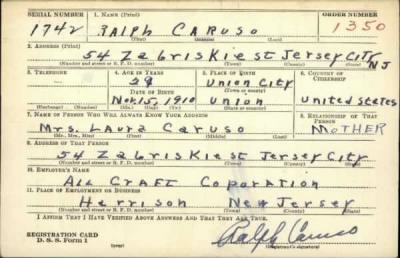 SERIAL NUMBER 1. NAME (Print) ORDER NUMBER
1742 RALPH CARUSO 1350
(First) (Middle) (Last)
2. ADDRESS (Print)
54 Zabriskie st Jersey City NJ
(Number and street or R. F. D. number) (Town) (County) (State)
3. TELEPHONE 4. AGE IN YEARS 5. PLACE OF BIRTH 6. COUNTRY OF CITIZENSHIP
29 Union City
DATE OF BIRTH (Town or county)
Nov. 15, 1910 Union United States
(Exchange) (No.) (Mo.) (Day) (Yr.) (State or country)
7. NAME OF PERSON WHO WILL ALWAYS KNOW YOUR ADDRESS 8. RELATIONSHIP OF THAT PERSON
Mrs. Laura Caruso MOTHER
(Mr., Mrs., Miss) (First) (Middle) (Last)
9. ADDRESS OF THAT PERSON
54 Zabriskie st Jersey City
(Number and street or R. F. D. number) (Town) (County) (State)
10. EMPLOYER'S NAME
ALL CRAFT Coporation
11. PLACE OF EMPLOYMENT OR BUSINESS
Harrison New Jersey
(Number and street or R. F. D. number) (Town) (County) (State)
I AFFIRM THAT I HAVE VERIFIED ABOVE ANSWERS AND THAT THEY ARE TRUE.
REGISTRATION CARD
D. S. S. Form 1 (over) Ralph Caruso
(Registrant's signature)